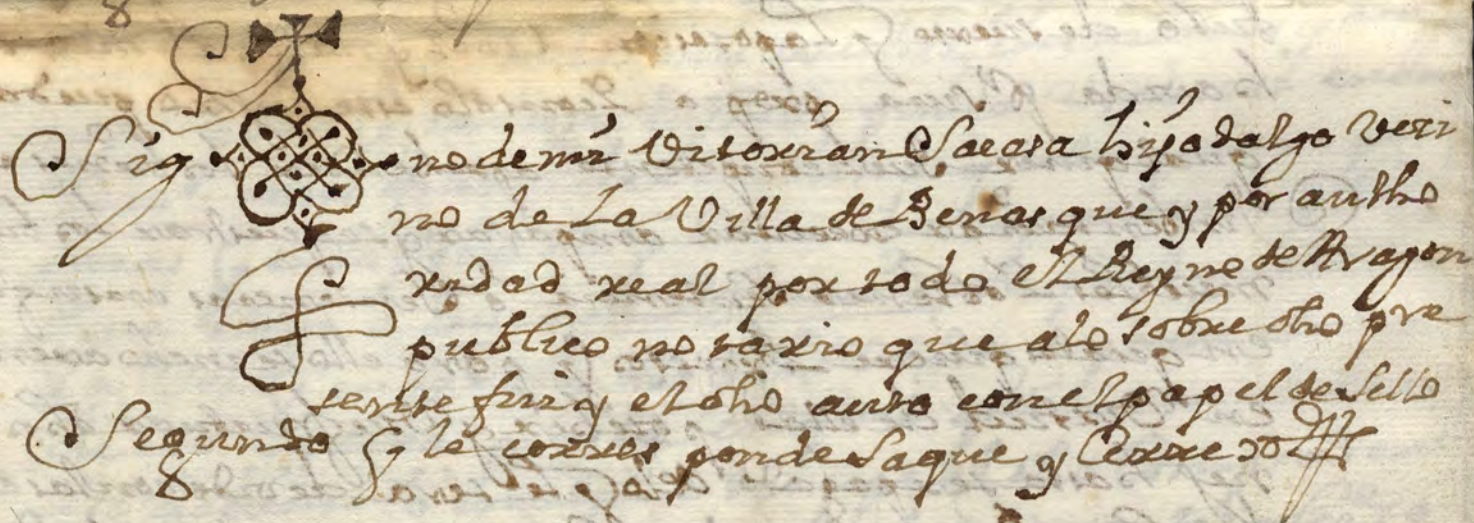 Sig no de mi Vitorian Sacasa hijodalgo Veci
no de La Villa de Benasque y por autho
ridad real por todo el Reyno de Aragon
publico notario que alo sobre dho pre
sente fui y el dho auto con el papel de sello
Segundo q le corresponde saque y Cerre